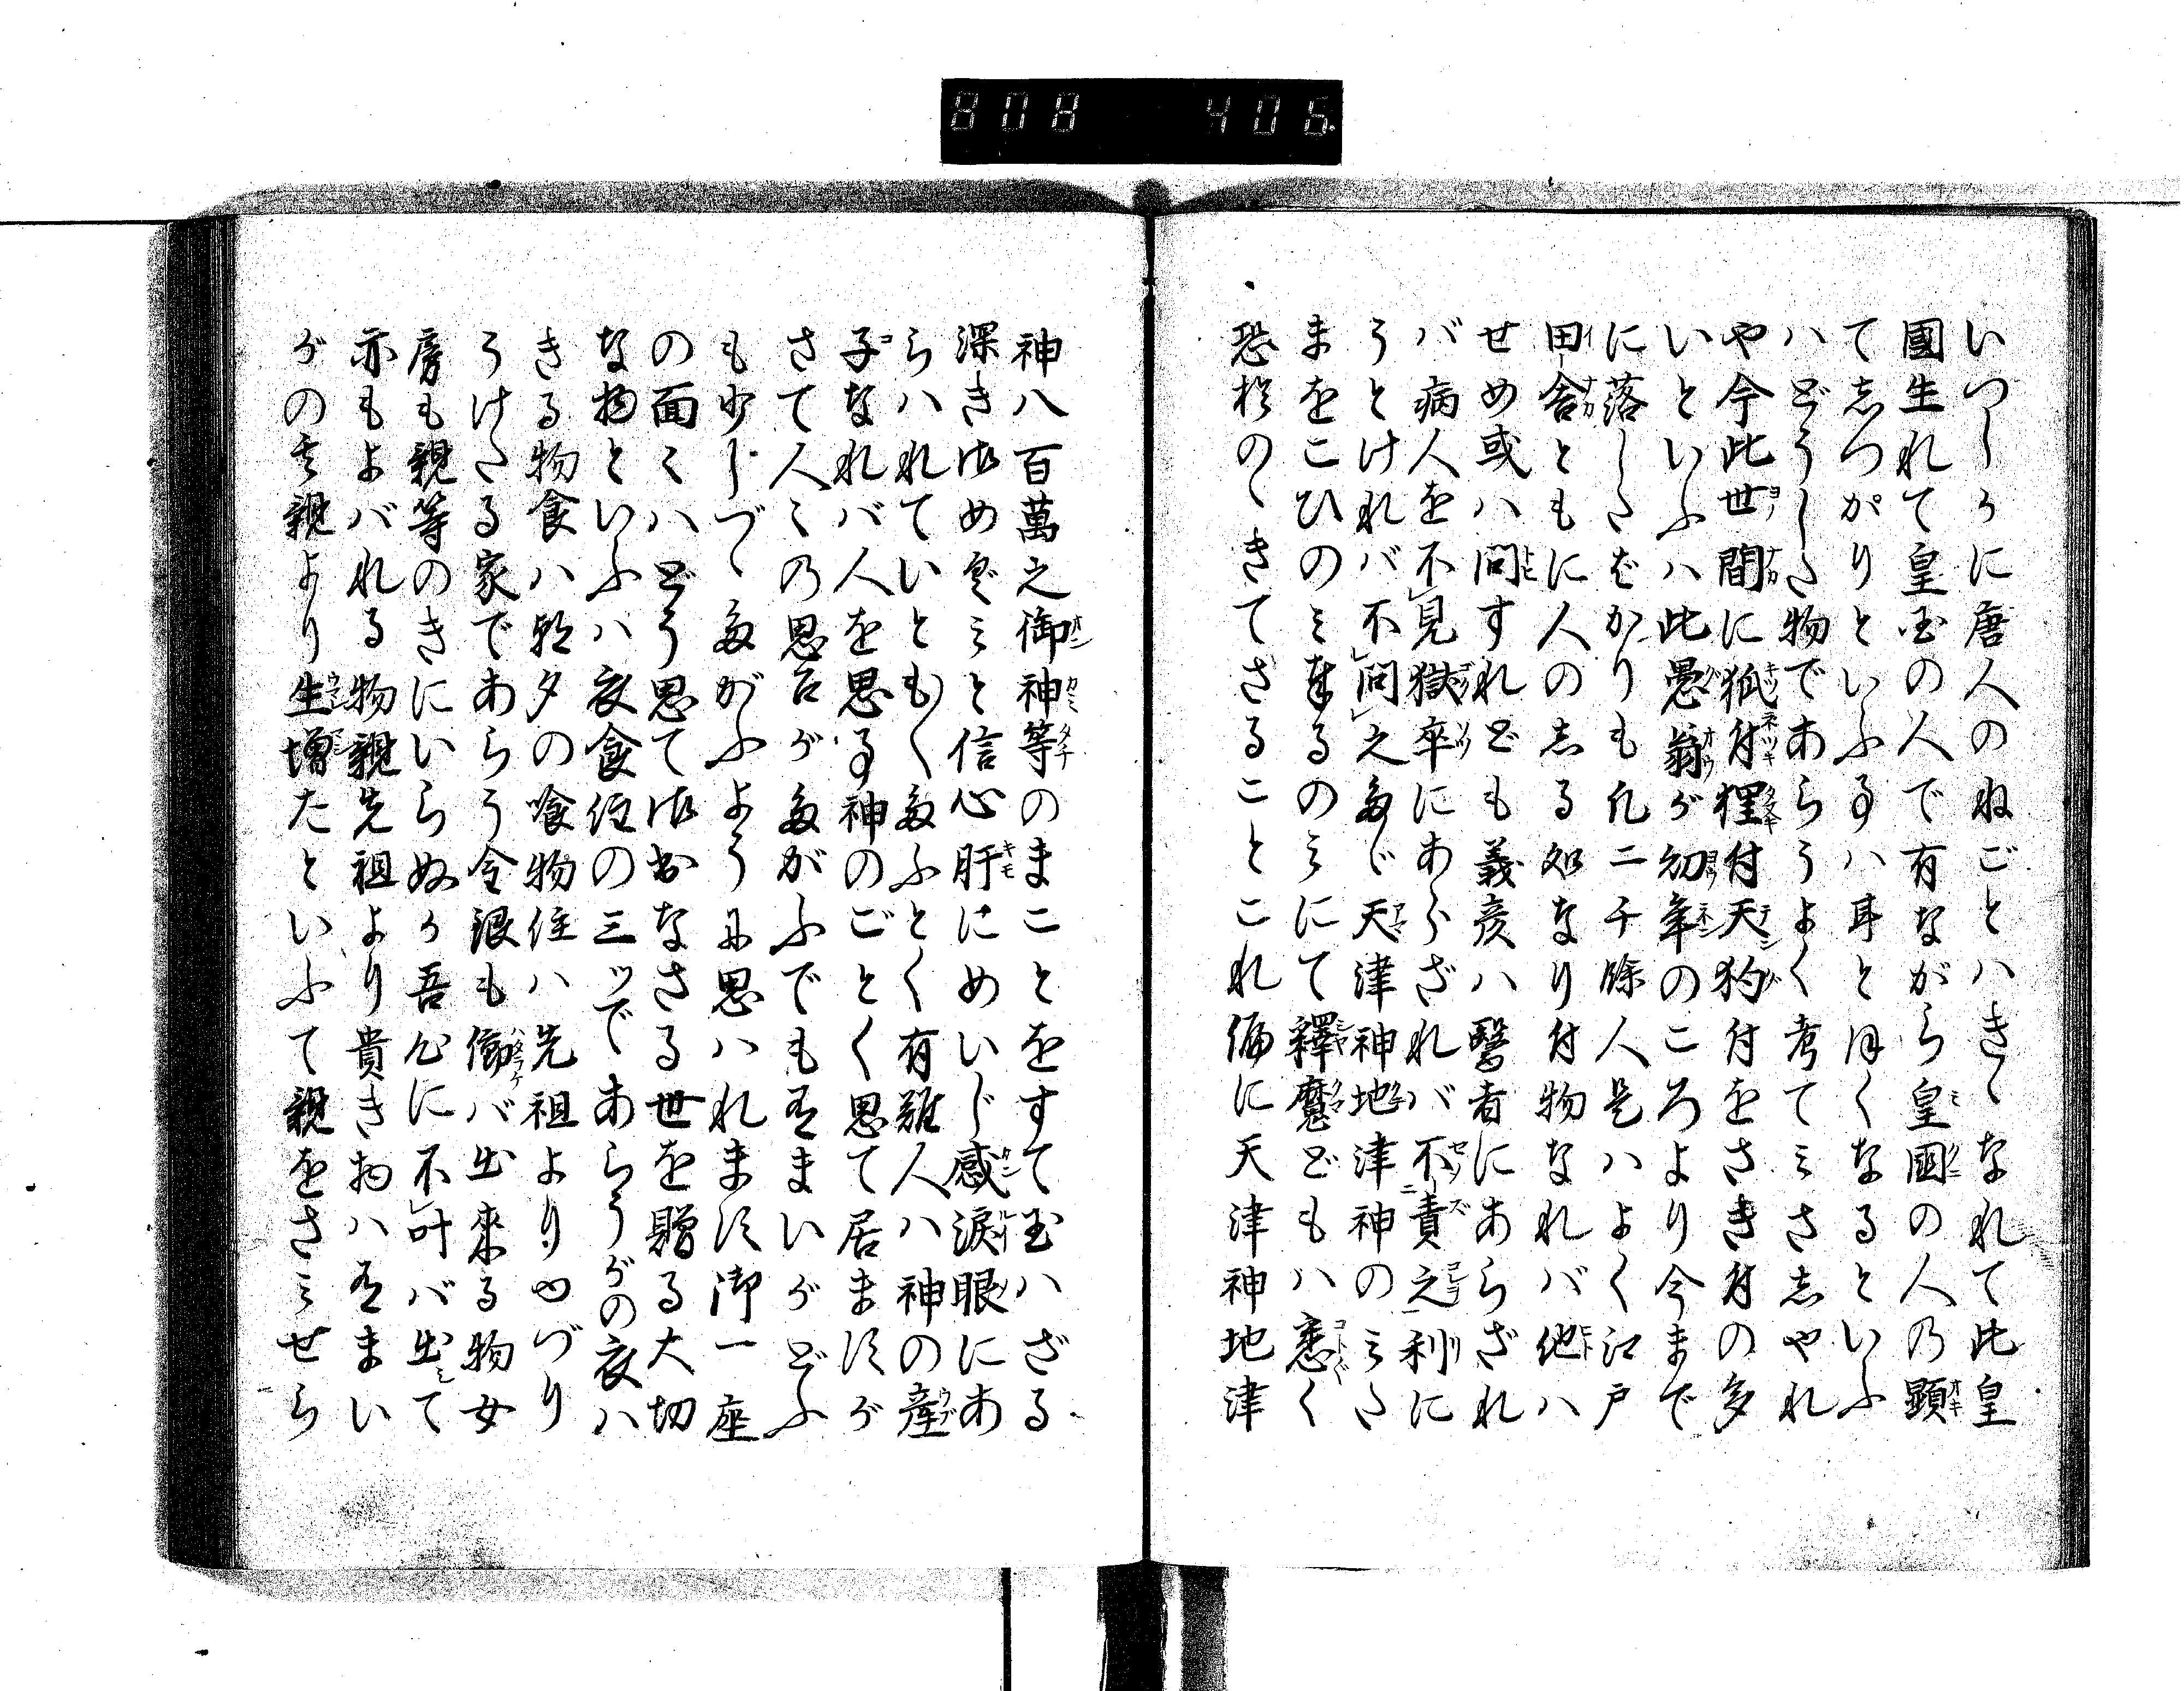 808 405
いつしかに唐人のねごとハきゝなれて此皇
國生れて皇国の人で有ながら皇國の人の顕
て志つがりといふ事ハ耳とほくなるといふ
ハどうした物であらうよく考てミさ志やれ
や今此世間に狐付狸付天狗付をさき付の多
いといふハ此愚翁が幼年のころより今まで
に落したばかりも凡二千餘人是ハよく江戸
田舎ともに人の志る処なり付物なれバ他ハ
せめ或ハ問すれども義彦ハ醫者にあらざれ
バ病人を不見獄卒にあらざれバ不責之利に
うとけれバ不問之多ゞ天津神地津神のミた
まをこひのミ奉るのミにて禪魔どもハ悉く
恐れのゝきてさること これ偏に天津神地津
神八百萬之御神等のまことをすて玉ハざる
深き御めぐミと信心肝にめいじ感涙眼にあ
らハれていともく多ふとく有難人ハ神の産
子なれバ人を思る神のごとく思て居ますが
さて人ミの思召が多がふでも有まいがどふ
も少しづゝ多がふように思ハれます御一座
の面ミハどう思て御出なさる世を贈る大切
な物といふハ衣食住の三ッであらうがの衣ハ
きる物食ハ朝夕の喰物住ハ先祖よりゆづり
うけたる家であらう金銀も働バ出來る物女
房も親等のきにいらぬか吾心に不叶バ出て
亦もよバれる物親先祖より貴き物ハ有まい
がの其親より生増たといふて親をさミせら